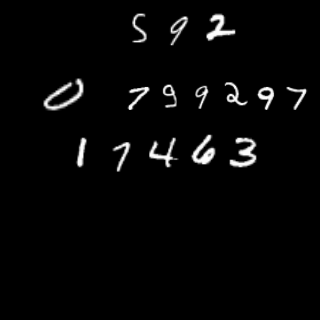 592
0 799297
17463